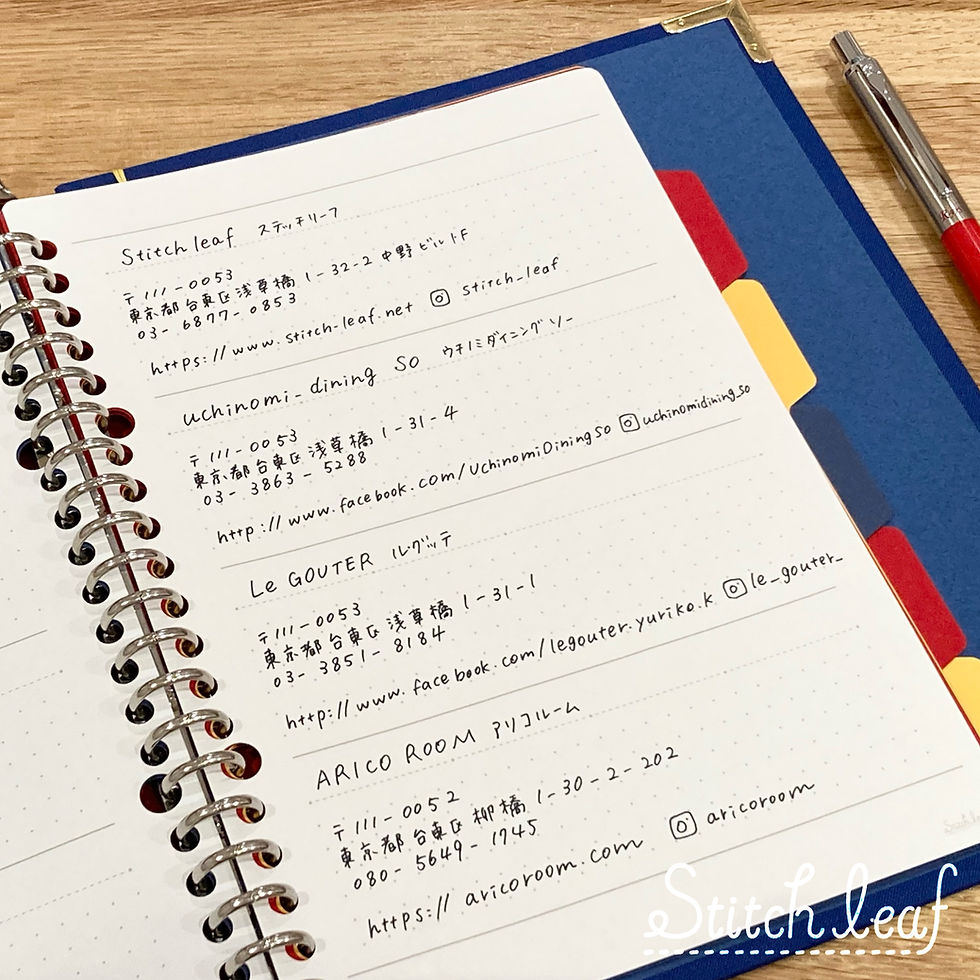 Stitch leaf ステッチリーフ
〒111-0053
東京都台東区浅草橋1-32-2 中野ビル1F
03-6877-0853
https://www.stitch-leaf.net stitch_leaf
uchinomi_dining SO ウチノミダイニング ソー
〒111-0053
東京都台東区浅草橋1-31-4
03-3863-5288
http://www.facebook.com/UchinomiDiningSO uchinomidining_so
Le GOUTER ルグッテ
〒111-0053
東京都台東区浅草橋1-31-1
03-3851-8184
http://www.facebook.com/legouter.yuriko.k le_gouter_
ARICO ROOM アリコルーム
〒111-0052
東京都台東区柳橋1-30-2-202
080-5649-1745
https://aricoroom.com aricoroom
Stitch leaf